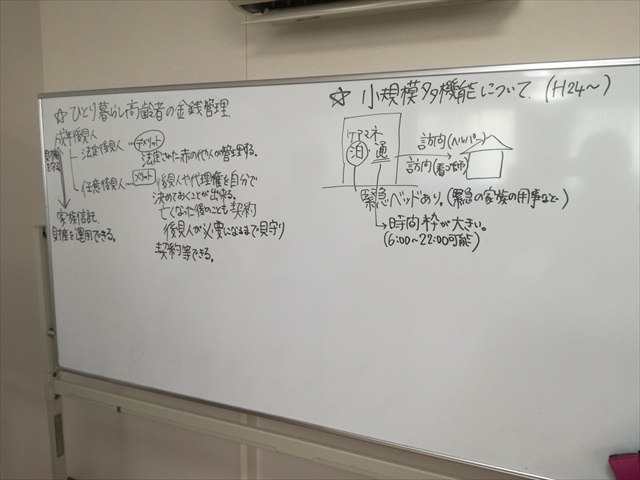 ☆ ひとり暮らし高齢者の金銭管理
成年後見人
法定後見人
デメリット
法定された赤の他人が管理する。
任意後見人
メリット
後見人や代理権を自分で
決めておくことが出来る。
亡くなった後のことも契約
後見人が必要になるまで見守り
契約等できる。
家族信託
財産を運用できる。
☆ 小規模多機能について (H24〜)
ケアマネ
泊・通
訪問(ヘルパー)
訪問(看つ
緊急ベッドあり。(緊急の家族の用事など)
→時間枠が大きい。
(6:00〜22:00可能)